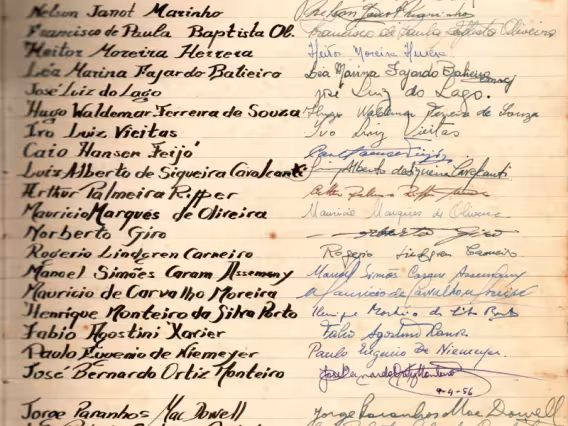 Nelson Janot Marinho
Francisco de Paula Baptista Ol. Francisco de Paula Baptista Oliveira
Heitor Moreira Herrera Heitor Moreira Herrera
Léa Marina Fajardo Batieiro Léa Marina Fajardo
José Luiz do Lago José Luiz do Lago.
Hugo Waldemar Ferreira de Souza Hugo Waldemar Ferreira de Souza
Ivo Luiz Vieitas Ivo Luiz Vieitas
Caio Hansen Feijó
Luiz Alberto de Siqueira Cavalcanti Alberto de Siqueira Cavalcanti
Arthur Palmeira Ripper
Mauricio Marques de Oliveira Mauricio Marques de Oliveira
Norberto Giro Norberto Giro
Rogerio Lindgren Carneiro Rogerio Lindgren Carneiro
Manoel Simões Caram Assemany Manoel Simões
Mauricio de Carvalho Moreira Mauricio de Carvalho Moreira
Henrique Monteiro da Silva Porto
Fabio Agostini Xavier Fabio Agostini Xavier
Paulo Eugenio de Niemeyer Paulo Eugenio De Niemeyer.
José Bernardo Ortiz Monteiro José Bernardo Ortiz Monteiro
9-4-56
Jorge Paranhos Mac Dowell Jorge Paranhos Mac Dowell